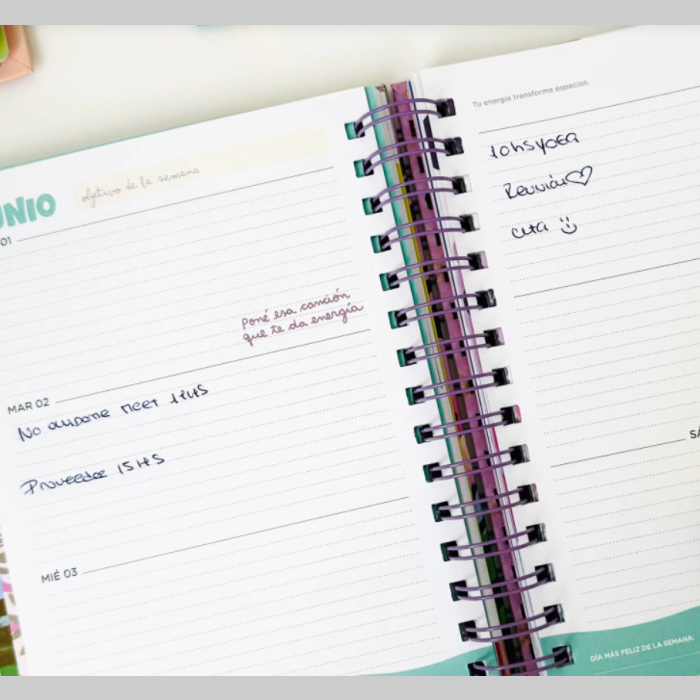 UNIO
objetivo de la semana
01
Poné esa canción
que te da energía
MAR 02
No olvidarme meet 11HS
Proveedor 15HS
MIÉ 03
Tu energía transforma espacios.
10hs yoga
Reunión♡
cita :)
SÁ
DÍA MÁS FELIZ DE LA SEMANA: